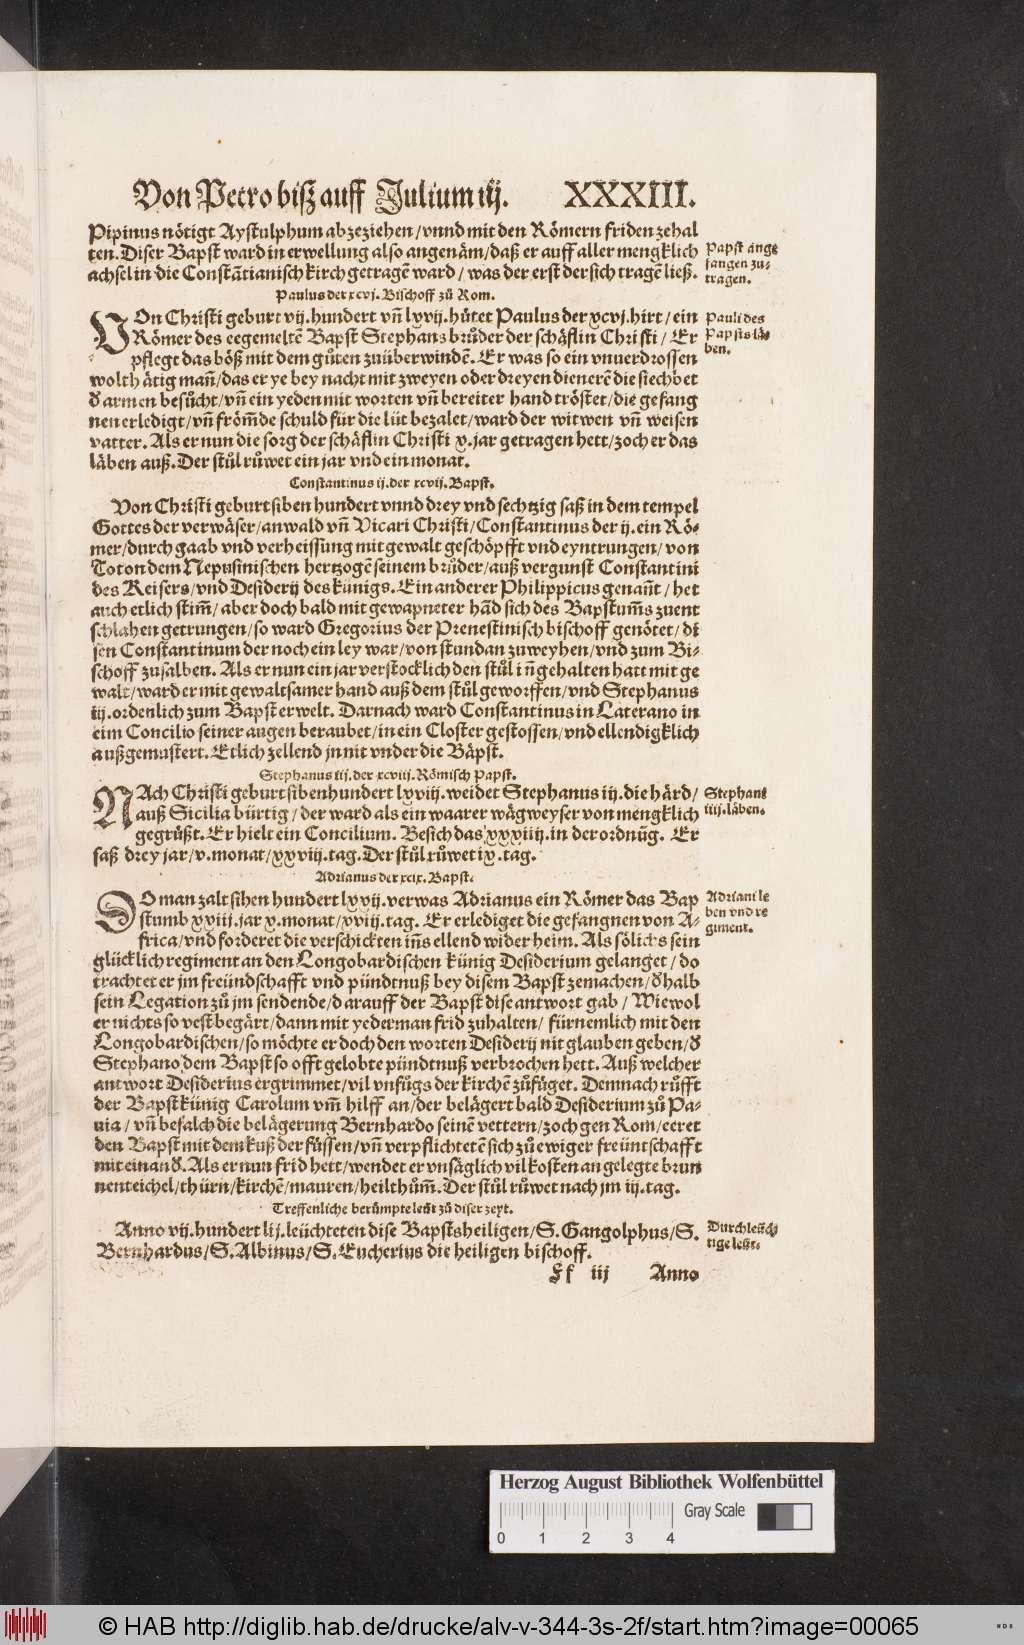 Von Petro biß auff Julium iij. XXXIII.
Pipinus nötigt Aystulphum abzeziehen/vnnd mit den Römern friden zehal
ten. Diser Bapst ward in erwellung also angenäm/daß er auff aller mengklich
achsel in die Constãtianisch kirch getragẽ ward/was der erst der sich tragẽ ließ.
Papst ange
fangen zu-
tragen.
Paulus der xcvj. Bischoff zů Rom.
VOn Christi geburt vij.hundert vñ lxvij.hůtet Paulus der xcvj.hirt/ein
Römer des eegemeltẽ Bapst Stephans brůder der schäflin Christi/Er
pflegt das böß mit dem gůten zuüberwindẽ. Er was so ein vnuerdrossen
wolthätig mañ/das er ye bey nacht mit zweyen oder dreyen dienerẽ die siechbet
đ armen besůcht/vñ ein yeden mit worten vñ bereiter hand tröstet/die gefang
nen erledigt/vñ frömde schuld für die lüt bezalet/ward der witwen vñ weisen
vatter. Als er nun die sorg der schäflin Christi x.jar getragen hett/zoch er das
läben auß. Der stůl růwet ein jar vnd ein monat.
Pauli des
Papsts lä-
ben.
Constantinus ij.der xcvij.Bapst.
Von Christi geburt siben hundert vnnd drey vnd sechtzig saß in dem tempel
Gottes der verwäser/anwald vñ Vicari Christi/Constantinus der ij.ein Rö-
mer/durch gaab vnd verheissung mit gewalt geschöpfft vnd eyntrungen/von
Toton dem Nepusinischen hertzogẽ seinem brůder/auß vergunst Constantini
des Keisers/vnd Desiderij des künigs. Ein anderer Philippicus genañt/het
auch etlich stim̃/aber doch bald mit gewapneter hãd sich des Bapstum̃s zuent
schlahen getrungen/so ward Gregorius der Prenestinisch bischoff genötet/di
sen Constantinum der noch ein ley war/von stundan zuweyhen/vnd zum Bi-
schoff zusalben. Als er nun ein jar verstocklich den stůl iñ gehalten hatt mit ge
walt/ward er mit gewaltsamer hand auß dem stůl geworffen/vnd Stephanus
iij.ordenlich zum Bapst erwelt. Darnach ward Constantinus in Laterano in
eim Concilio seiner augen beraubet/in ein Closter gestossen/vnd ellendigklich
außgemustert. Etlich zellend jn nit vnder die Bäpst.
Stephanus iij.der xcviij.Römisch Papst.
NAch Christi geburt sibenhundert lxviij.weidet Stephanus iij.die härd/
auß Sicilia bürtig/der ward als ein waarer wägweyser von mengklich
gegrüßt. Er hielt ein Concilium. Besich das xxxiiij.in der ordnũg. Er
saß drey jar/v.monat/xxviij.tag. Der stůl růwet ix.tag.
Stephans
iiij.läben.
Adrianus der xcix.Bapst.
DO man zalt siben hundert lxxij.verwas Adrianus ein Römer das Bap
stumb xxiii.jar x.monat/xviij.tag. Er erlediget die gefangnen von A-
frica/vnd forderet die verschickten iñs ellend wider heim. Als sölichs sein
glücklich regiment an den Longobardischen künig Desiderium gelanget/do
trachtet er jm freündschafft vnd pündtnuß bey disem Bapst zemachen/đhalb
sein Legation zů jm sendende/darauff der Bapst dise antwort gab/Wiewol
er nichts so vest begärt/dann mit yederman frid zuhalten/fürnemlich mit den
Longobardischen/so möchte er doch den worten Desiderij nit glauben geben/đ
Stephano dem Bapst so offt gelobte pündtnuß verbrochen hett. Auß welcher
antwort Desiderius ergrimmet/vil vnfůgs der kirchẽ zůfüget. Demnach růfft
der Bapst künig Carolum vm̃ hilff an/der belägert bald Desiderium zů Pa-
uia/vñ befalch die belägerung Bernhardo seinẽ vettern/zoch gen Rom/eeret
den Bapst mit dem kuß der füssen/vñ verpflichtetẽ sich zů ewiger freüntschafft
mit einanđ. Als er nun frid hett/wendet er vnsäglich vil kosten an gelegte brun
nenteichel/thürn/kirchẽ/mauren/heilthům̃. Der stůl růwet nach jm iij.tag.
Adriani le
ben vnd re
giment.
Treffenliche berümpte leüt zů diser zeyt.
Anno vij.hundert lij.leüchteten dise Bapstsheiligen/S.Gangolphus/S.
Bernhardus/S.Albinus/S.Eucherius die heiligen bischoff.
Durchleüch-
tige leüt.
Ff iij Anno
Herzog August Bibliothek Wolfenbüttel
Gray Scale
0 1 2 3 4
© HAB http://diglib.hab.de/drucke/alv-v-344-3s-2f/start.htm?image=00065